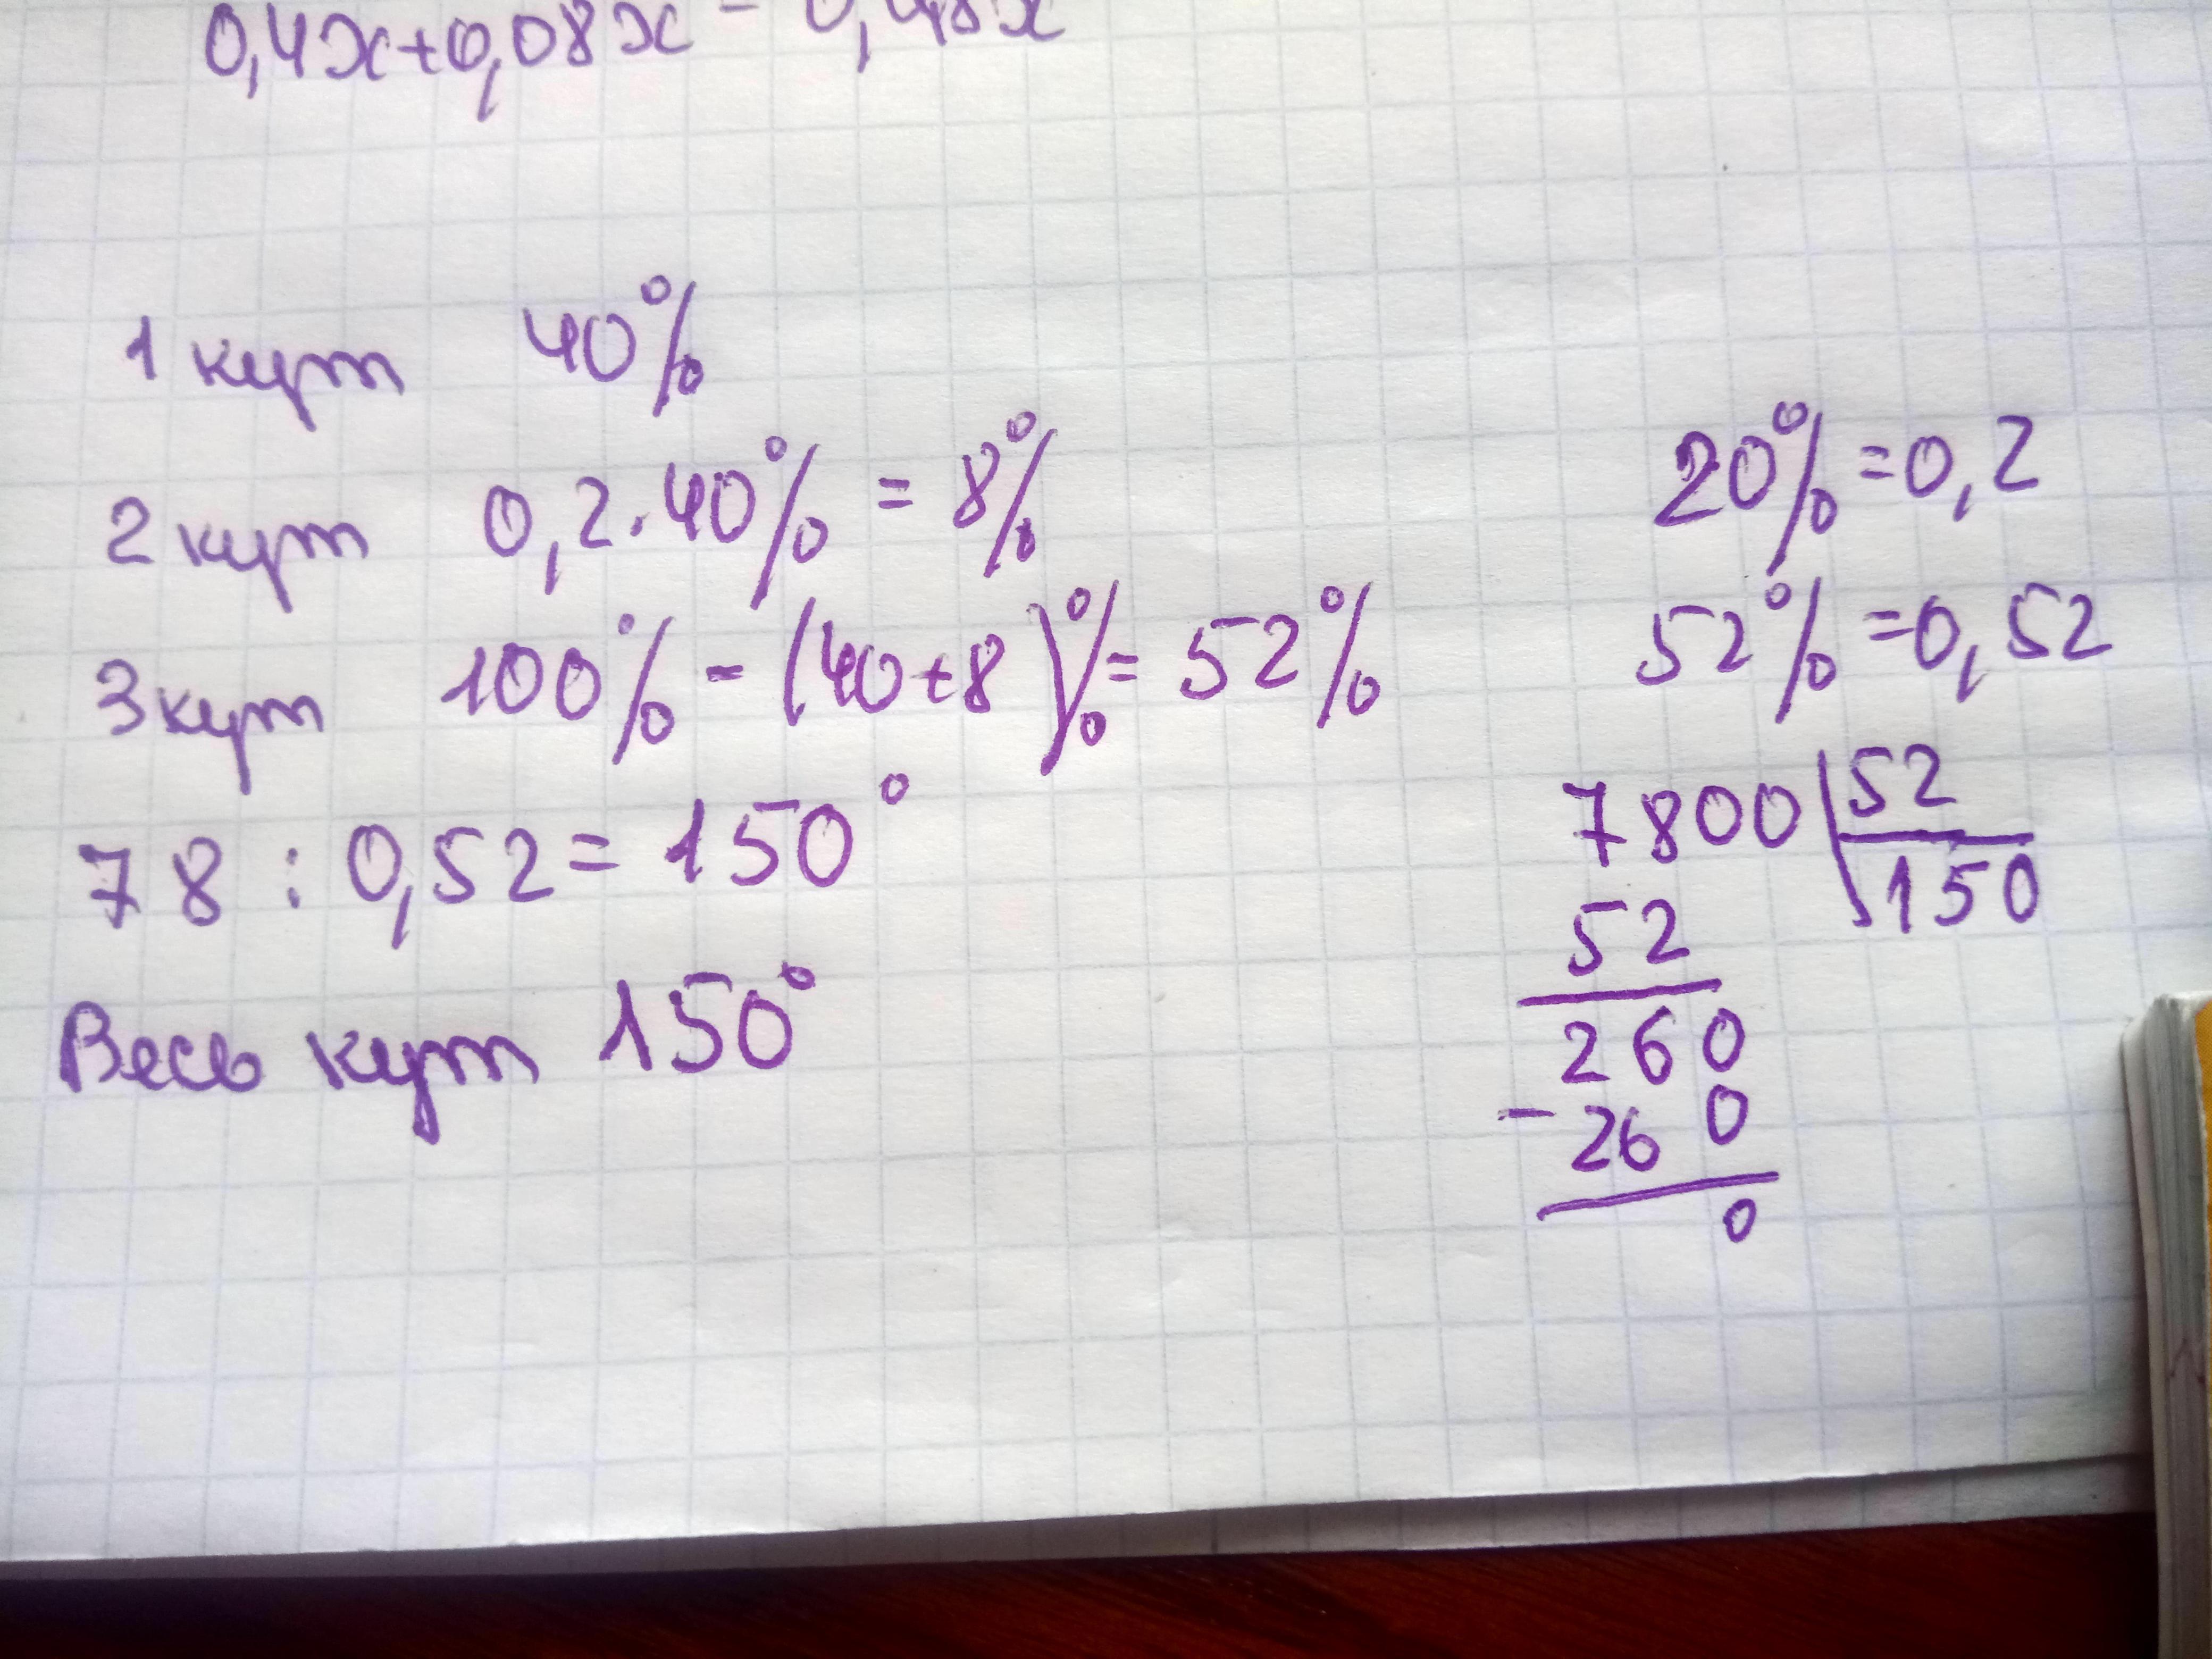 0,4x+0,08x = 0,48x
1 кут 40%
2 кут 0,2·40% = 8%
3 кут 100% - (40+8)% = 52%
78 : 0,52 = 150°
Весь кут 150°
20% = 0,2
52% = 0,52
7800 | 52
52 150
260
- 260
0